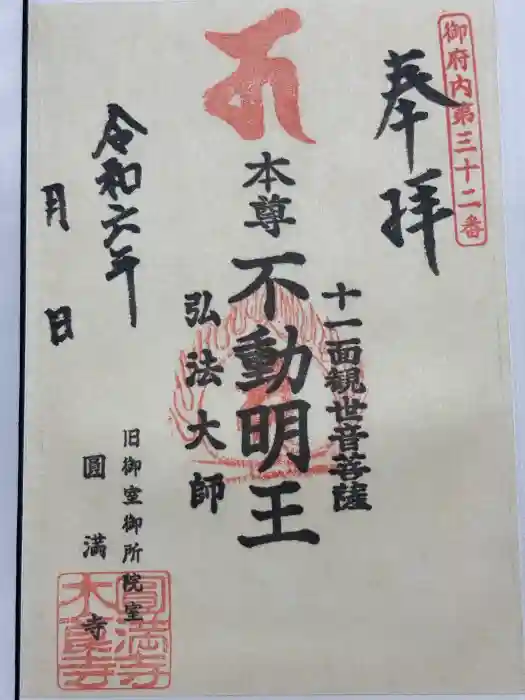 御府内第三十二番
奉拝
十一面観世音菩薩
本尊 不動明王
弘法大師
令和六年
月 日
旧御室御所院室
圓満寺
圓満寺
木食寺